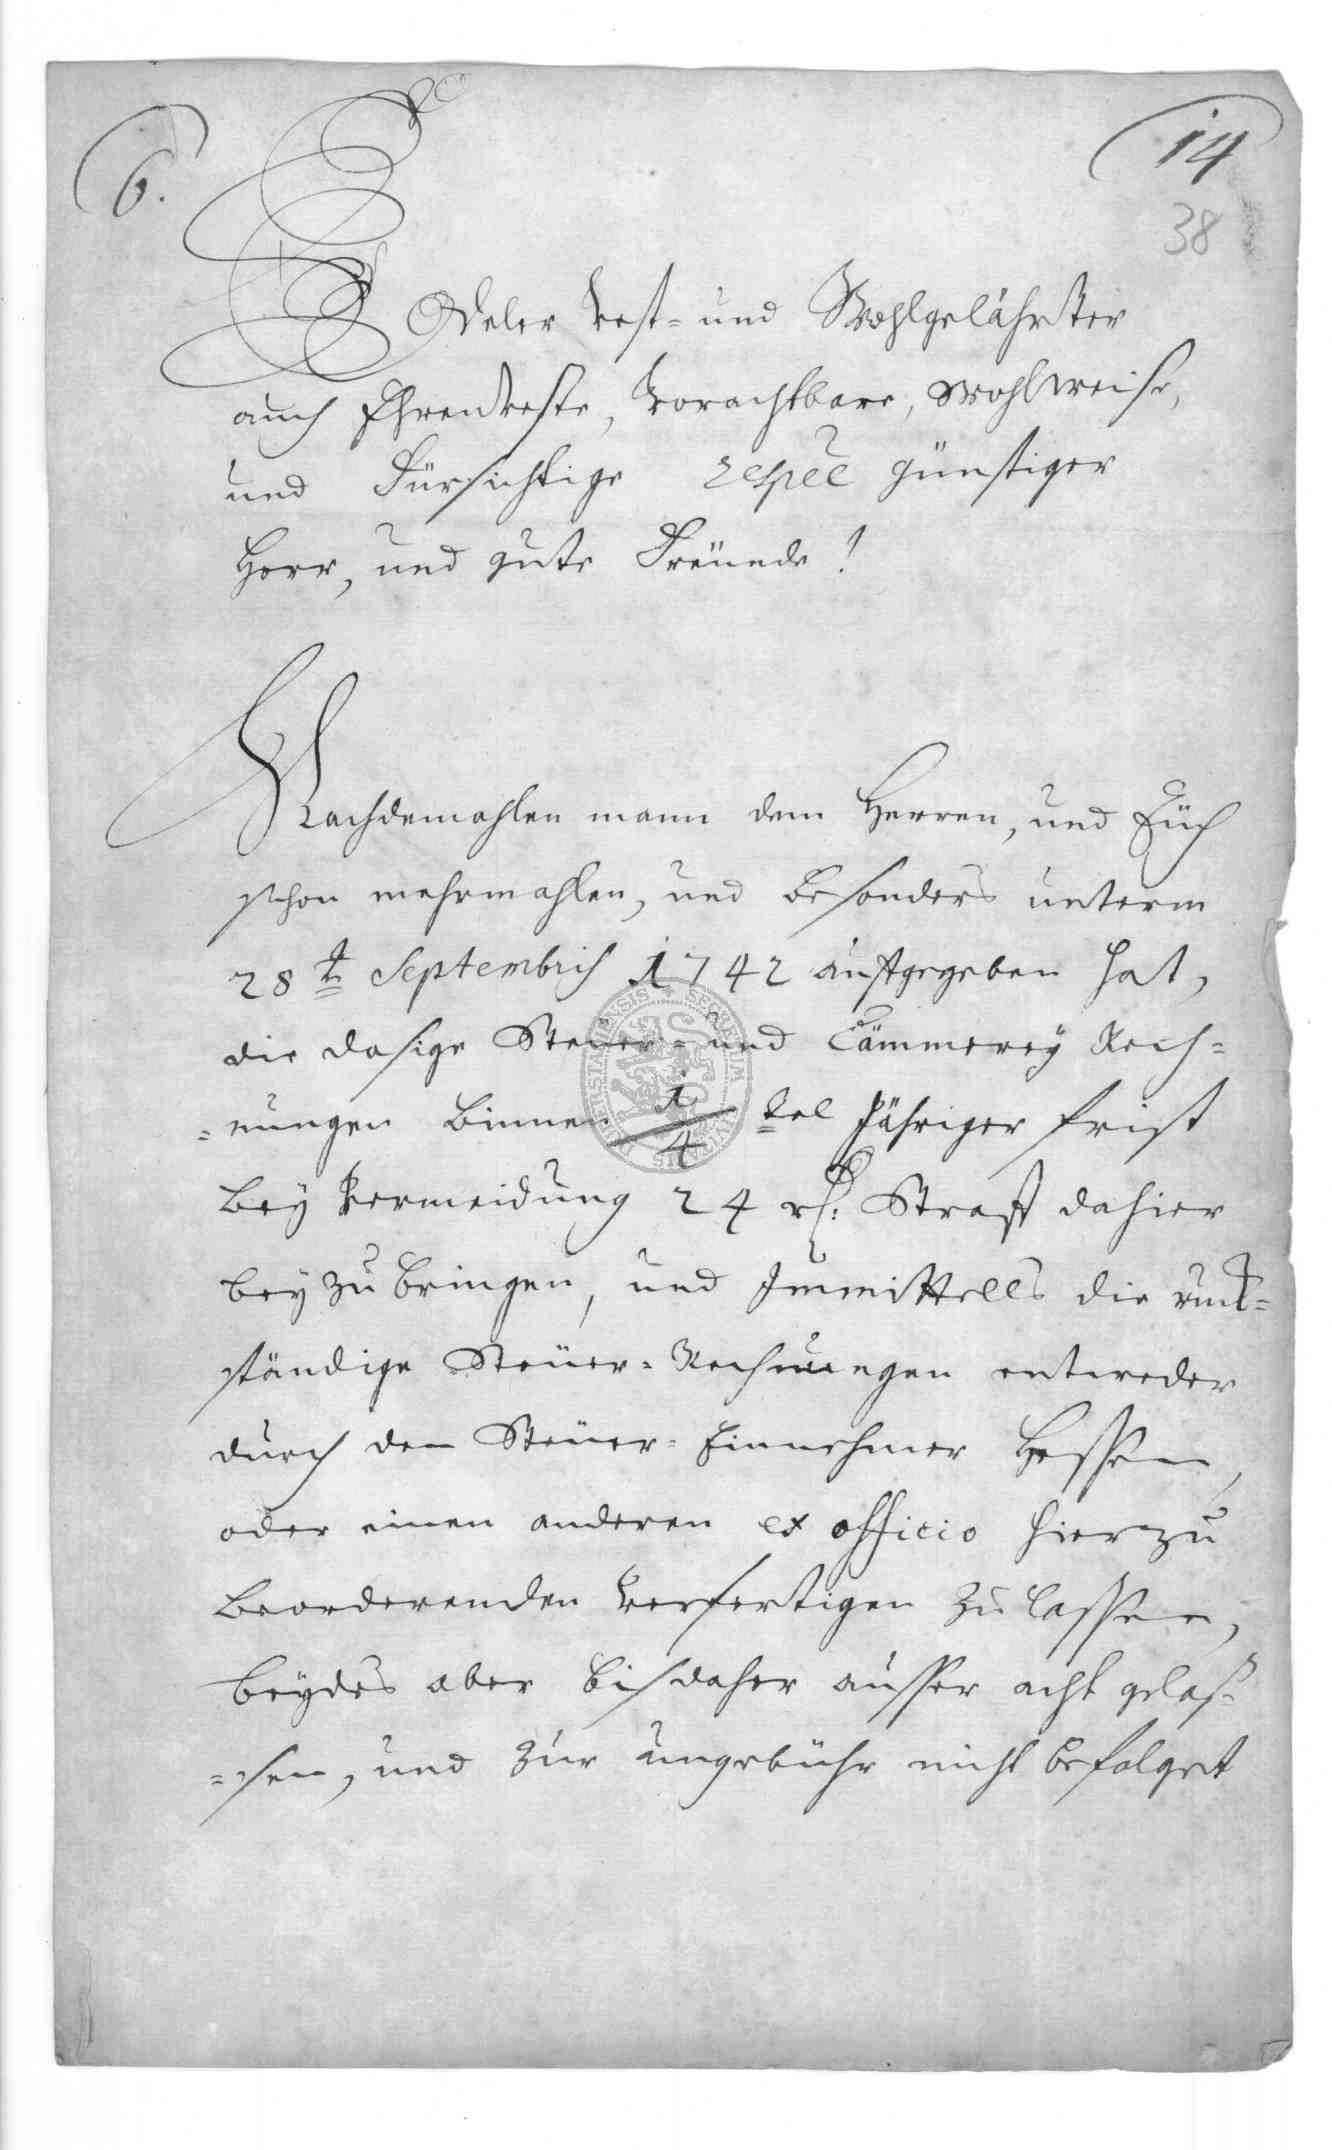 6.
14
38
Edeler Vest- und Wohlgelährter
auch Ehrenveste, Vorachtbare, Wohlweise,
und Fürsichtige respec günstiger
Herr, und gute Freünde!
Nachdemahlen mann dem Herren, und Eüch
schon mehrmahlen, und besonders unterm
28t Septembris 1742 aufgegeben hat,
die dasige Steüer- und Cämmerey Rech=
=nungen binnen 1/4 tel Jähriger frist
bey Vermeidung 24 rh: Straff dahier
beyzubringen, und Immittells die ruck=
ständige Steüer-Rechnungen entweder
durch den Steüer-Einnehmer Hessen,
oder einen anderen ex officio hierzu
beorderenden verfertigen zu lassen,
beydes aber bisdaher ausser acht gelas=
=sen, und zur ungebühr nicht befolget